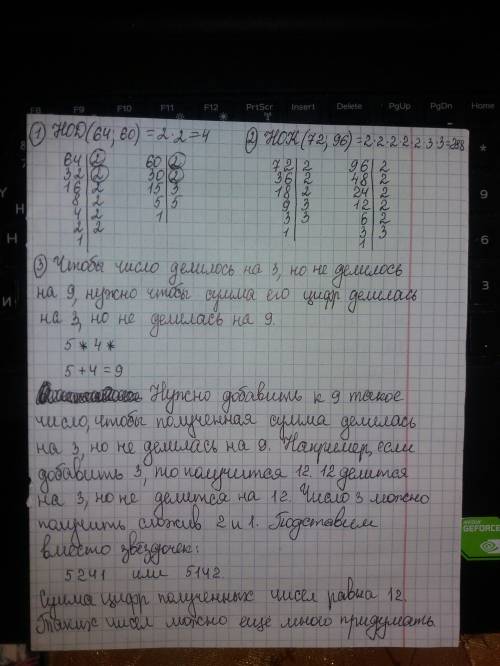 F8 F9 F10 F11 F12 PrtScr Insert Delete PgUp PgDn Home
① НОД(64; 60) = 2·2=4
② НОК(72; 96) = 2·2·2·2·2·3·3=288
64 2 60 2 72 2 96 2
32 2 30 2 36 2 48 2
16 2 15 3 18 2 24 2
8 2 5 5 9 3 12 2
4 2 1 3 3 6 2
2 2 1 3 3
1 1
③ Чтобы число делилось на 3, но не делилось
на 9, нужно чтобы сумма его цифр делилась
на 3, но не делилась на 9.
5 * 4 *
5 + 4 = 9
Нужно добавить к 9 такое
число, чтобы полученная сумма делилась
на 3, но не делилась на 9. Например, если
добавить 3, то получится 12. 12 делится
на 3, но не делится на 12. Число 3 можно
получить сложив 2 и 1. Подставим
вместо звёздочек:
5241 или 5142.
Сумма цифр полученных чисел равна 12.
Таких чисел можно ещё много придумать
NVIDIA
GEFORCE